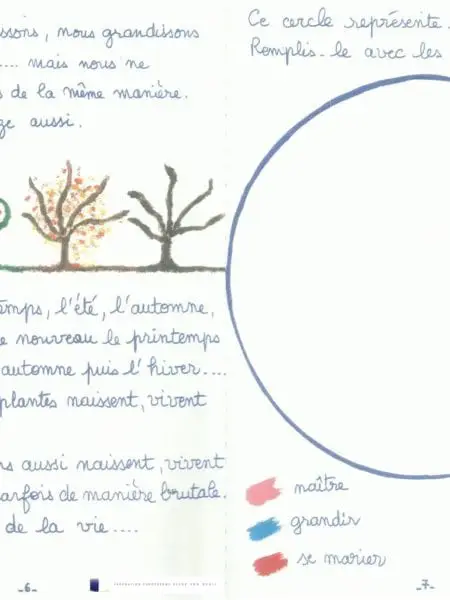 ssons, nous grandissons
.... mais nous ne
s de la même manière.
ge aussi.
emps, l'été, l'automne,
e nouveau le printemps
automne puis l'hiver....
plantes naissent, vivent
ns aussi naissent, vivent
arfois de manière brutale.
de la vie....
-6-
Ce cercle représente.
Remplis-le avec les
naître
grandir
se marier
-7-